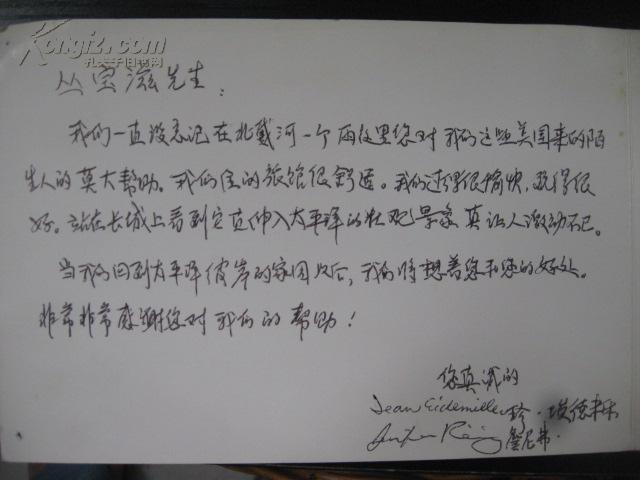 Kongfz.com
孔夫子旧书网
丛宝滋先生：
我们一直没忘记在北戴河一个雨夜里您对我们这些美国来的陌
生人的莫大帮助。我们住的旅馆很舒适。我们过得很愉快，玩得很
好。站在长城上看到它直伸入太平洋的壮观景象真让人激动不已。
当我们回到太平洋彼岸的家园以后，我们将想着您和您的好处。
非常非常感谢您对我们的帮助！
您真诚的
Jean Eidemiller 珍·埃德米乐
詹尼弗